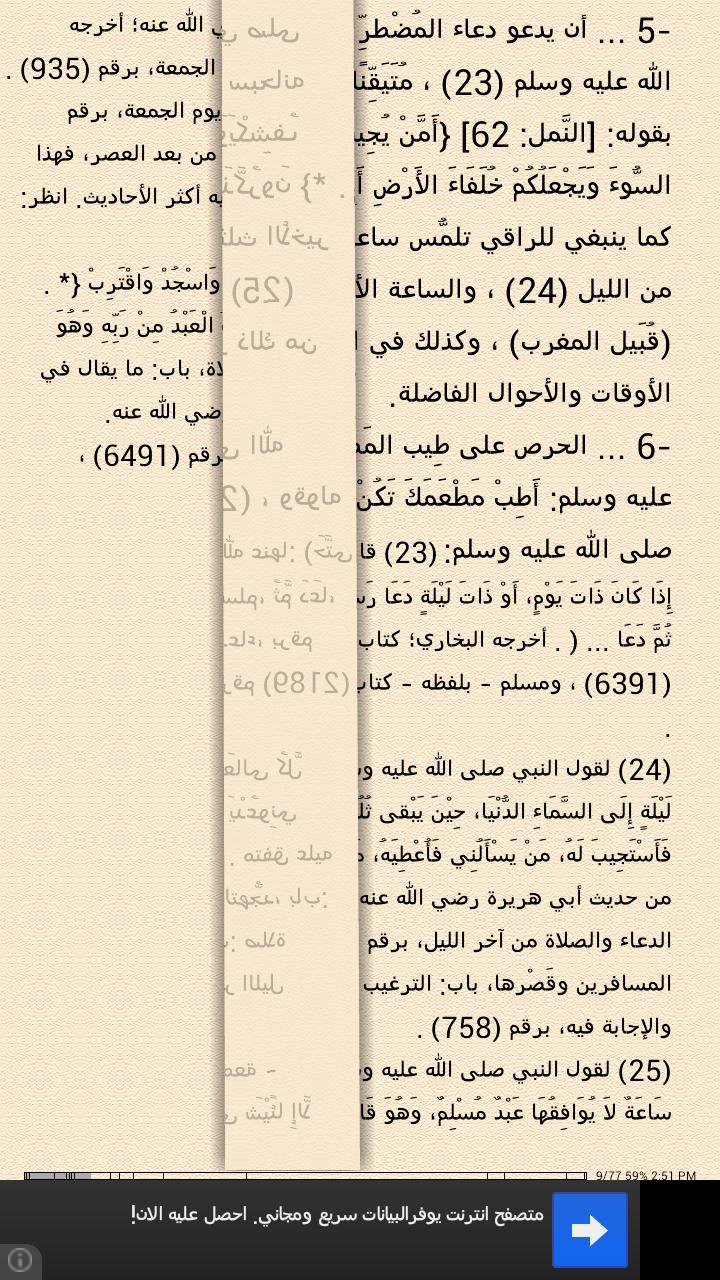 5- ... أن يدعو دعاء المُضْطرِّ
الله عليه وسلم (23) ، مُتَيقِّنًا
بقوله: [النَّمل: 62] {أَمَّنْ
السُّوءَ وَيَجْعَلُكُمْ خُلَفَاءَ الأَرْضِ
كما ينبغي للراقي تلمُّس
من الليل (24) ، والساعة
(قُبَيل المغرب) ، وكذلك في
الأوقات والأحوال الفاضلة.
6- ... الحرص على طِيب
عليه وسلم: أَطِبْ مَطْعَمَكَ تَكُنْ
صلى الله عليه وسلم: (23)
إِذَا كَانَ ذَاتَ يَوْمٍ، أَوْ ذَاتَ لَيْلَةٍ دَعَا
ثُمَّ دَعَا ... ( . أخرجه البخاري؛ كتاب
(6391) ، ومسلم - بلفظه - كتاب
.
(24) لقول النبي صلى الله عليه
لَيْلَةٍ إِلَى السَّمَاءِ الدُّنْيَا، حِيْنَ يَبْقى
فَأَسْتَجِيبَ لَهُ، مَنْ يَسْأَلُنِي فَأُعْطِيَهُ،
من حديث أبي هريرة رضي الله عنه
الدعاء والصلاة من آخر الليل، برقم
المسافرين وقَصْرها، باب: الترغيب
والإجابة فيه، برقم (758) .
(25) لقول النبي صلى الله عليه
سَاعَةٌ لاَ يُوَافِقُهَا عَبْدٌ مُسْلِمٌ، وَهُوَ
صلى
سبحانه
وَيَكْشِفُ
. *}
الأخير
(25)
من ذلك
الله
، وقوله
الله عنها: (حَتَّى
ثُمَّ دَعَا،
برقم
(2189)
كُلَّ
يَدْعُونِي
متفق عليه .
باب:
صلاة
الليل
-
شَيْئًا إِلاَّ
الله عنه؛ أخرجه
الجمعة، برقم (935) .
يوم الجمعة، برقم
من بعد العصر، فهذا
أكثر الأحاديث. انظر:
وَاسْجُدْ وَاقْتَرِبْ {* .
الْعَبْدُ مِنْ رَبِّهِ وَهُوَ
باب: ما يقال في
رضي الله عنه.
برقم (6491) ،
9/77 59% 2:51 PM
متصفح انترنت يوفرالبيانات سريع ومجاني. احصل عليه الان!